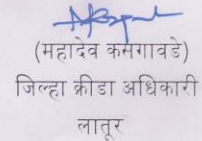 (महादेव कसगावडे)
जिल्हा क्रीडा अधिकारी
लातूर